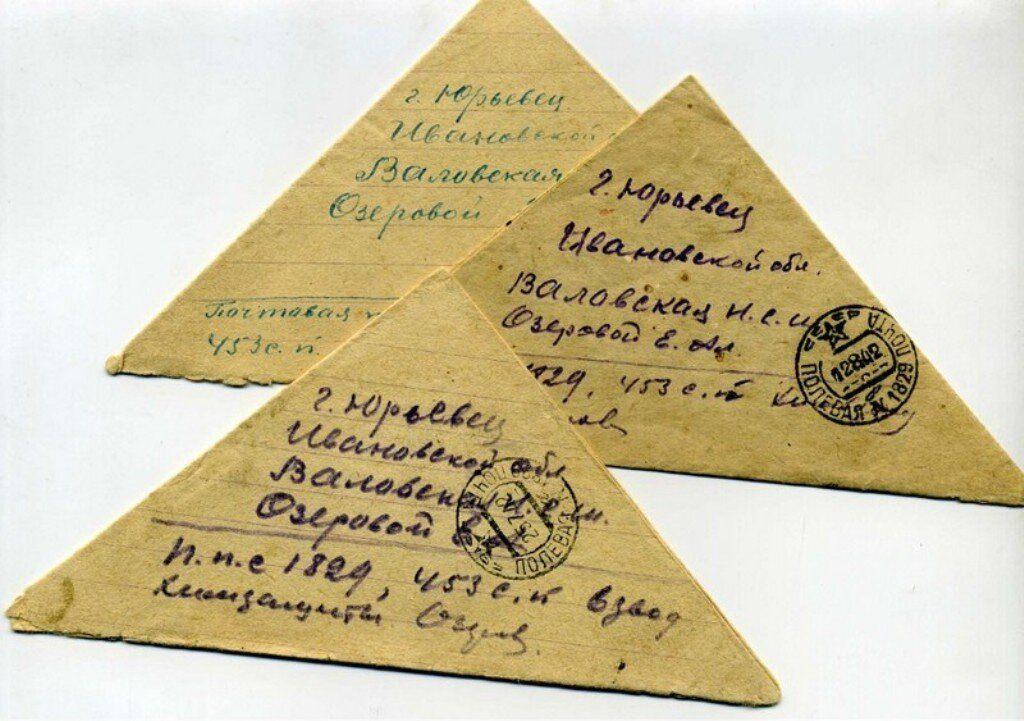 г. Юрьевец
Ивановской
Валовская
Озеровой
Почтовая
453 с. п.
г. Юрьевец
Ивановской обл.
Валовская Н.С.Ш.
Озеровой Е. Ал.
1829, 453 с. п
ПОЛЕВАЯ ПОЧТА
12 8 42
1829
г. Юрьевец
Ивановской обл
Валовская Н.С.Ш.
Озеровой Е.
П. п. с 1829, 453 с. п Взвод
Химзащиты Озеров.
ПОЛЕВАЯ ПОЧТА